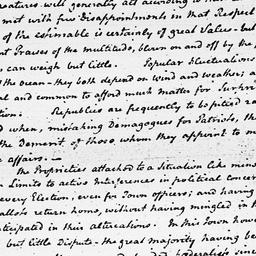 eatures will generally act according to their
met with few Disappointments in that Respect
of the estimable is certainly of great value - but
ent Praises of the multitude, blown on and off by the
can weigh but little. Popular Fluctuations
the ocean - they both depend on wind and weather; a
al and common to afford much matter for Surpri
tion. Republics are frequently to be pitied ra
d when, mistaking Demagogues for Patriots, th
the Demerit of those whom they appoint to m
affairs. —
The Proprieties attached to a Situation like mine
Limits to active Interferences in political concer
every Election, even for Town officers; and having
allots return home, without having mingled in th
nticipated in their altercations. In this Town howe
but little Dispute - the great majority having be
ded Federalists since